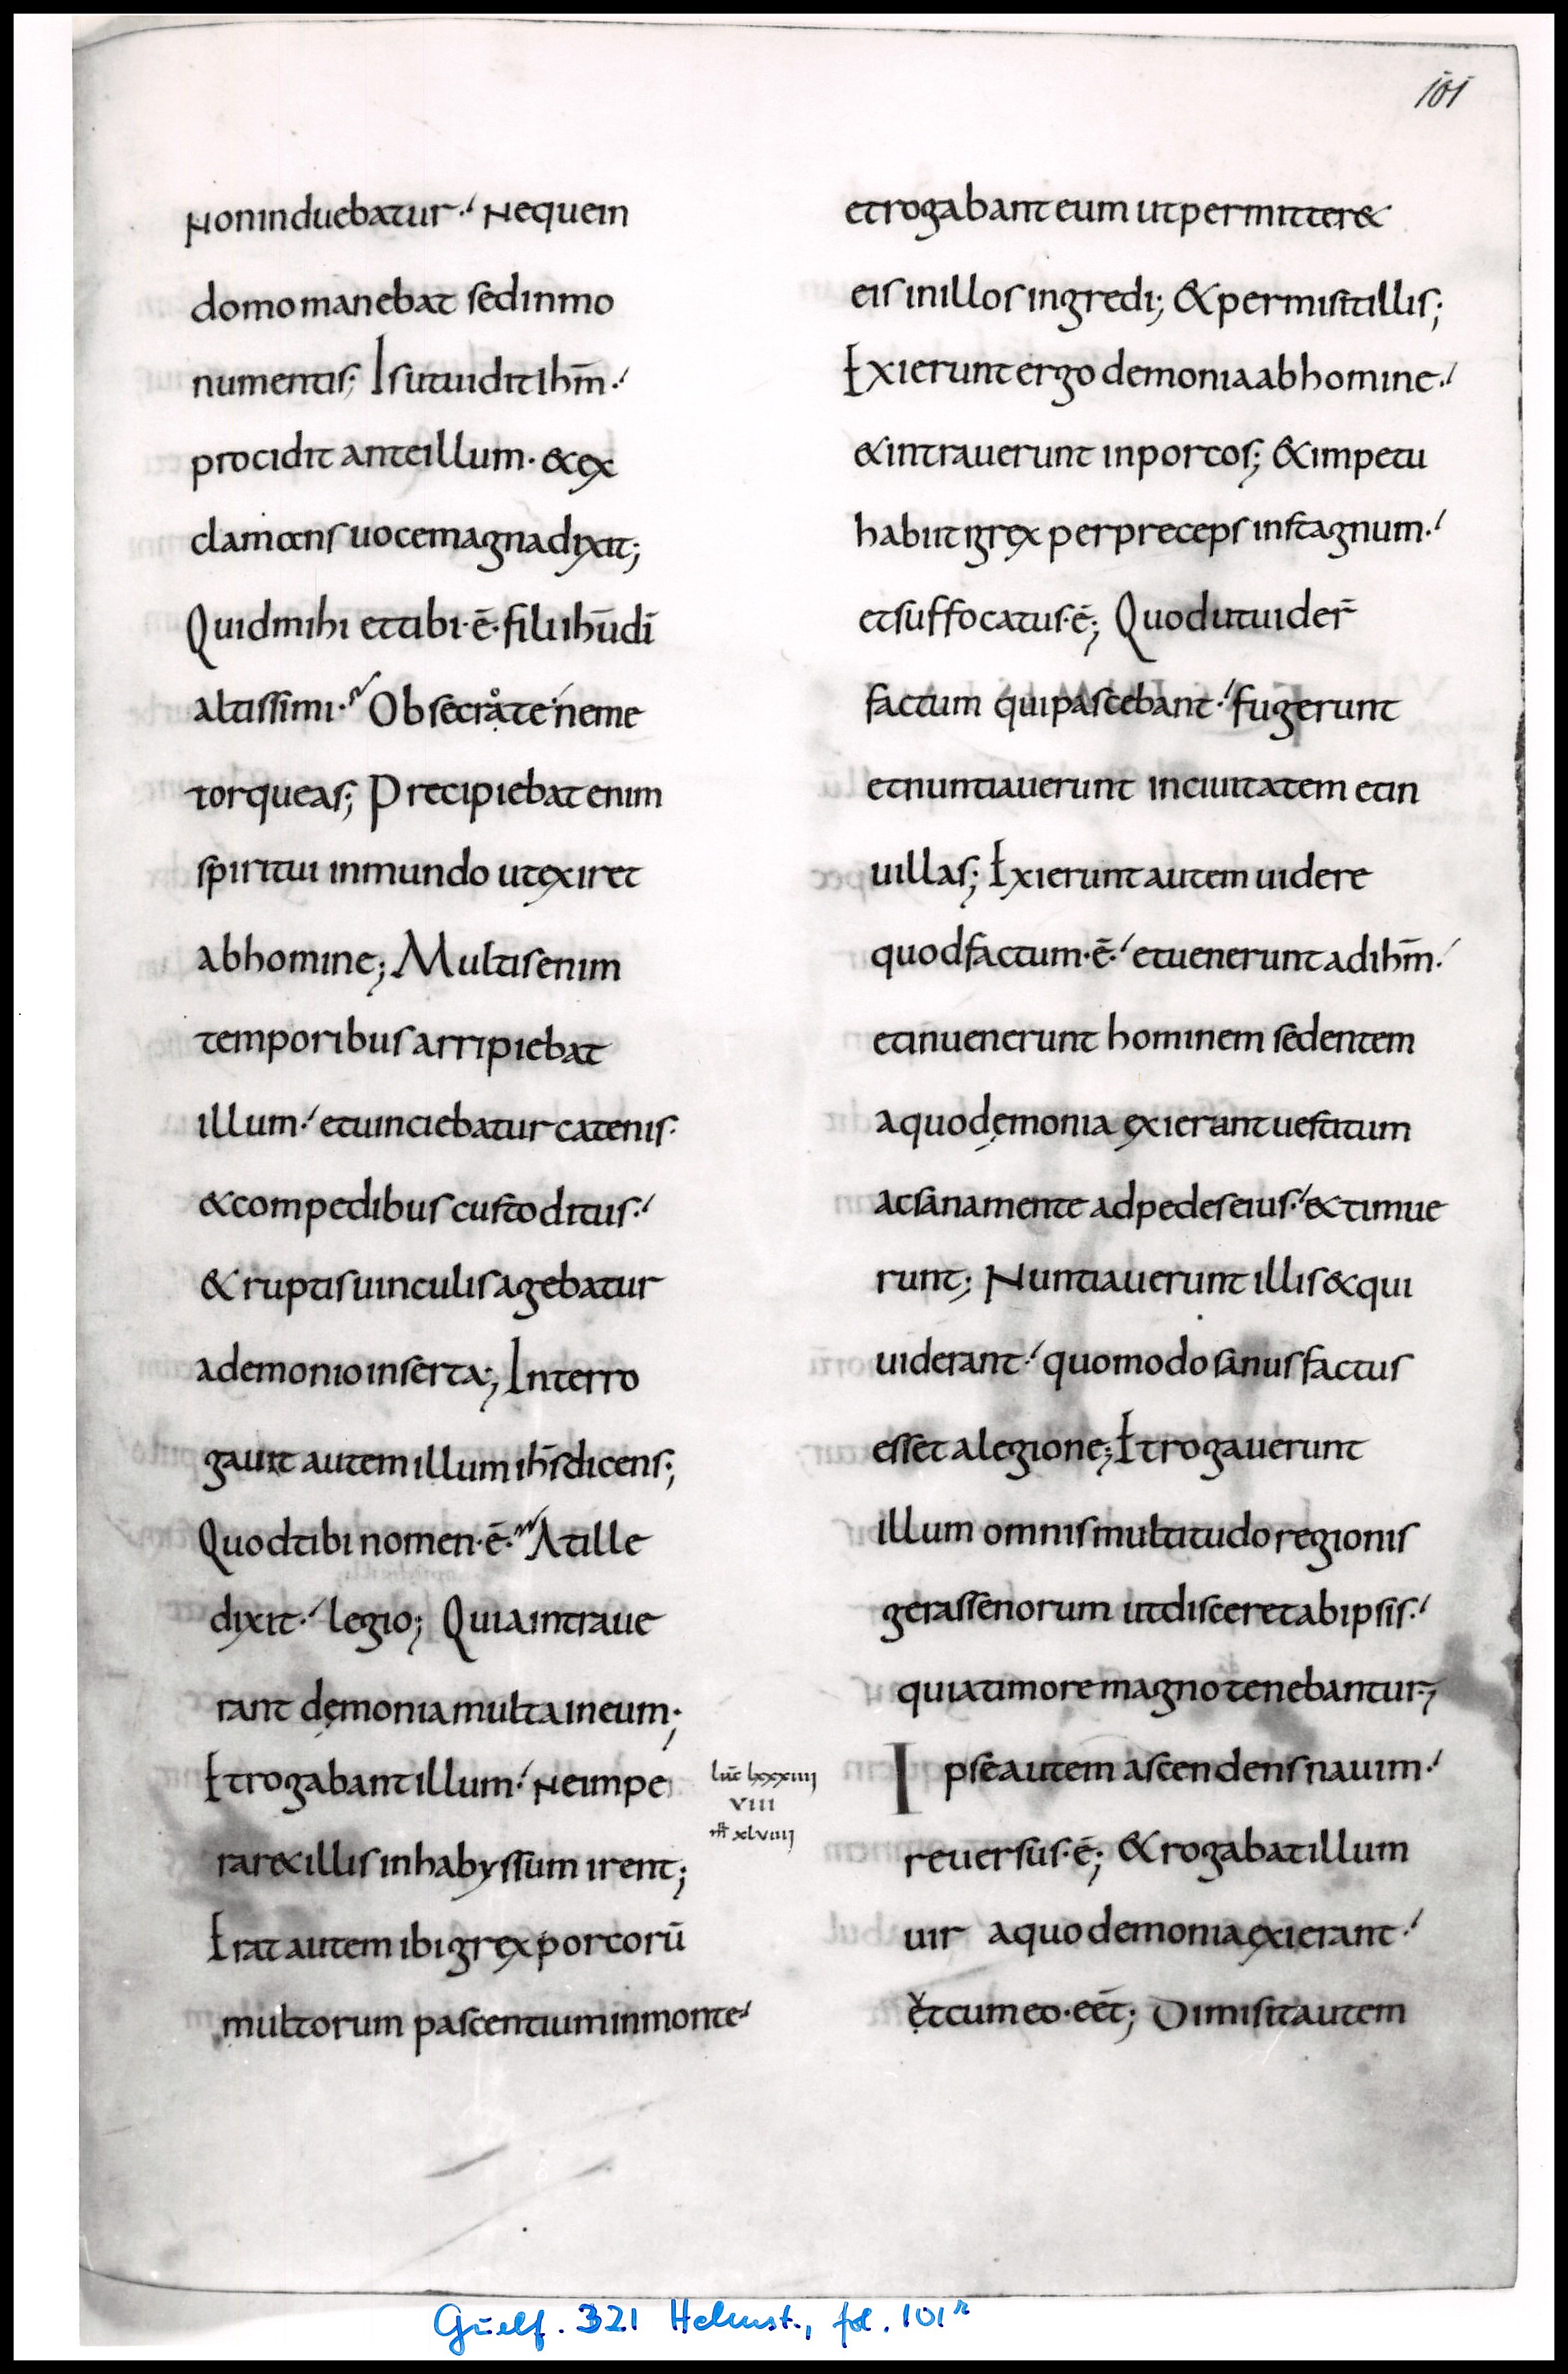 101
Non induebatur·/ Neque in
domo manebat sed in mo
numentis; Is ut uidit ihm̄·/
procidit ante illum· & ex
clamans uoce magna dixit;
Quid mihi et tibi· ē· fili ihū dī
altissimi· Obsecro te· ne me
torqueas; Precipiebat enim
spiritui inmundo ut exiret
ab homine; Multis enim
temporibus arripiebat
illum·/ et uinciebatur catenis·
& compedibus custoditus·/
& ruptis uinculis agebatur
a demonio in serta; Interro
gauit autem illum ihs̄ dicens;
Quod tibi nomen· ē· At ille
dixit·/ legio; Quia intraue
rant dęmonia multa in eum;
Et rogabant illum·/ Ne impe
rar& illis in habyssum irent;
Erat autem ibi grex porcorū
multorum pascentium in monte·/
et rogabant eum ut permitter&
eis in illos ingredi; & permisit illis;
Exierunt ergo demonia ab homine·/
& intrauerunt in porcos; & impetu
habiit grex per preceps in stagnum·/
et suffocatus· ē; Quod ut uider̄
factum qui pascebant·/ fugerunt
et nuntiauerunt in ciuitatem et in
uillas; Exierunt autem uidere
quod factum· ē·/ et uenerunt ad ihm̄·/
et inuenerunt hominem sedentem
a quo dęmonia exierant uestitum
ac sana mente ad pedes eius·/ & timue
runt; Nuntiauerunt illis & qui
uiderant·/ quomodo sanus factus
esset a legione; Et rogauerunt
illum omnis multitudo regionis
gerassenorum ut disceret ab ipsis·/
quia timore magno tenebantur;
luc̄ lxxxiiii
VIII
mr̄ xlviiii
Ipse autem ascendens nauim·/
reuersus· ē; & rogabat illum
uir a quo demonia exierant·/
ut cum eo· eēt; Dimisit autem
Guelf. 321 Helmst., fol. 101r